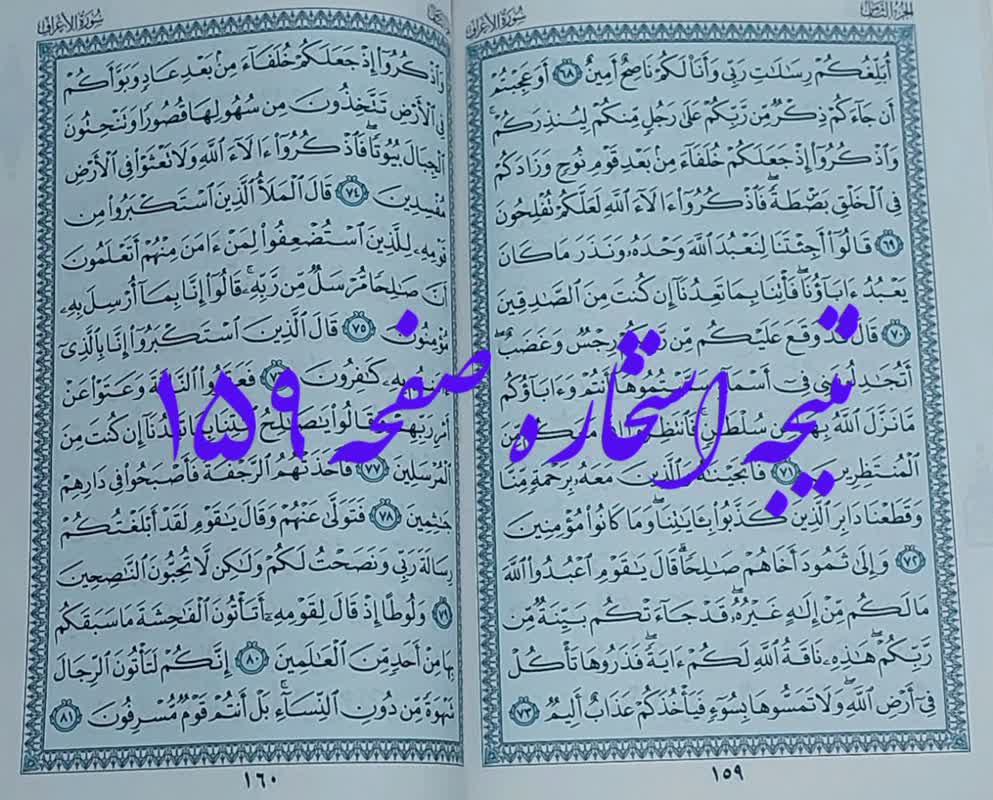 الجزء الثامن
سورة الأعراف
أُبَلِّغُكُمْ رِسَالَاتِ رَبِّي وَأَنَا۠ لَكُمْ نَاصِحٌ أَمِينٌ ٦٨ أَوَعَجِبْتُمْ
أَن جَاءَكُمْ ذِكْرٌ مِّن رَّبِّكُمْ عَلَىٰ رَجُلٍ مِّنكُمْ لِيُنذِرَكُمْ
وَاذْكُرُوا إِذْ جَعَلَكُمْ خُلَفَاءَ مِنْ بَعْدِ قَوْمِ نُوحٍ وَزَادَكُمْ
فِي الْخَلْقِ بَصْۜطَةً فَاذْكُرُوا ءَالَاءَ اللَّهِ لَعَلَّكُمْ تُفْلِحُونَ
٦٩ قَالُوا أَجِئْتَنَا لِنَعْبُدَ اللَّهَ وَحْدَهُۥ وَنَذَرَ مَا كَانَ
يَعْبُدُ ءَابَاؤُنَا فَأْتِنَا بِمَا تَعِدُنَا إِن كُنتَ مِنَ الصَّادِقِينَ
٧٠ قَالَ قَدْ وَقَعَ عَلَيْكُم مِّن رَّبِّكُمْ رِجْسٌ وَغَضَبٌ
أَتُجَادِلُونَنِي فِي أَسْمَاءٍ سَمَّيْتُمُوهَا أَنتُمْ وَءَابَاؤُكُم
مَّا نَزَّلَ اللَّهُ بِهَا مِن سُلْطَانٍ فَانتَظِرُوا إِنِّي مَعَكُم مِّنَ
الْمُنتَظِرِينَ ٧١ فَأَنجَيْنَاهُ وَالَّذِينَ مَعَهُۥ بِرَحْمَةٍ مِّنَّا
وَقَطَعْنَا دَابِرَ الَّذِينَ كَذَّبُوا بِـَٔايَاتِنَا وَمَا كَانُوا مُؤْمِنِينَ
٧٢ وَإِلَىٰ ثَمُودَ أَخَاهُمْ صَالِحًا قَالَ يَاقَوْمِ اعْبُدُوا اللَّهَ
مَا لَكُم مِّنْ إِلَٰهٍ غَيْرُهُۥ قَدْ جَاءَتْكُم بَيِّنَةٌ مِّن
رَّبِّكُمْ هَٰذِهِۦ نَاقَةُ اللَّهِ لَكُمْ ءَايَةً فَذَرُوهَا تَأْكُلْ
فِي أَرْضِ اللَّهِ وَلَا تَمَسُّوهَا بِسُوءٍ فَيَأْخُذَكُمْ عَذَابٌ أَلِيمٌ ٧٣
١٥٩
سورة الأعراف
وَاذْكُرُوا إِذْ جَعَلَكُمْ خُلَفَاءَ مِنْ بَعْدِ عَادٍ وَبَوَّأَكُمْ
فِي الْأَرْضِ تَتَّخِذُونَ مِن سُهُولِهَا قُصُورًا وَتَنْحِتُونَ
الْجِبَالَ بُيُوتًا فَاذْكُرُوا ءَالَاءَ اللَّهِ وَلَا تَعْثَوْا فِي الْأَرْضِ
مُفْسِدِينَ ٧٤ قَالَ الْمَلَأُ الَّذِينَ اسْتَكْبَرُوا مِن
قَوْمِهِۦ لِلَّذِينَ اسْتُضْعِفُوا لِمَنْ ءَامَنَ مِنْهُمْ أَتَعْلَمُونَ
أَنَّ صَالِحًا مُّرْسَلٌ مِّن رَّبِّهِۦ قَالُوا إِنَّا بِمَا أُرْسِلَ بِهِۦ
مُؤْمِنُونَ ٧٥ قَالَ الَّذِينَ اسْتَكْبَرُوا إِنَّا بِالَّذِي
ءَامَنتُم بِهِۦ كَافِرُونَ ٧٦ فَعَقَرُوا النَّاقَةَ وَعَتَوْا عَنْ
أَمْرِ رَبِّهِمْ وَقَالُوا يَاصَالِحُ ائْتِنَا بِمَا تَعِدُنَا إِن كُنتَ مِنَ
الْمُرْسَلِينَ ٧٧ فَأَخَذَتْهُمُ الرَّجْفَةُ فَأَصْبَحُوا فِي دَارِهِمْ
جَاثِمِينَ ٧٨ فَتَوَلَّىٰ عَنْهُمْ وَقَالَ يَاقَوْمِ لَقَدْ أَبْلَغْتُكُمْ
رِسَالَةَ رَبِّي وَنَصَحْتُ لَكُمْ وَلَٰكِن لَّا تُحِبُّونَ النَّاصِحِينَ
٧٩ وَلُوطًا إِذْ قَالَ لِقَوْمِهِۦ أَتَأْتُونَ الْفَاحِشَةَ مَا سَبَقَكُم
بِهَا مِنْ أَحَدٍ مِّنَ الْعَالَمِينَ ٨٠ إِنَّكُمْ لَتَأْتُونَ الرِّجَالَ
شَهْوَةً مِّن دُونِ النِّسَاءِ بَلْ أَنتُمْ قَوْمٌ مُّسْرِفُونَ ٨١
١٦٠
نتیجه استخاره صفحه ۱۵۹